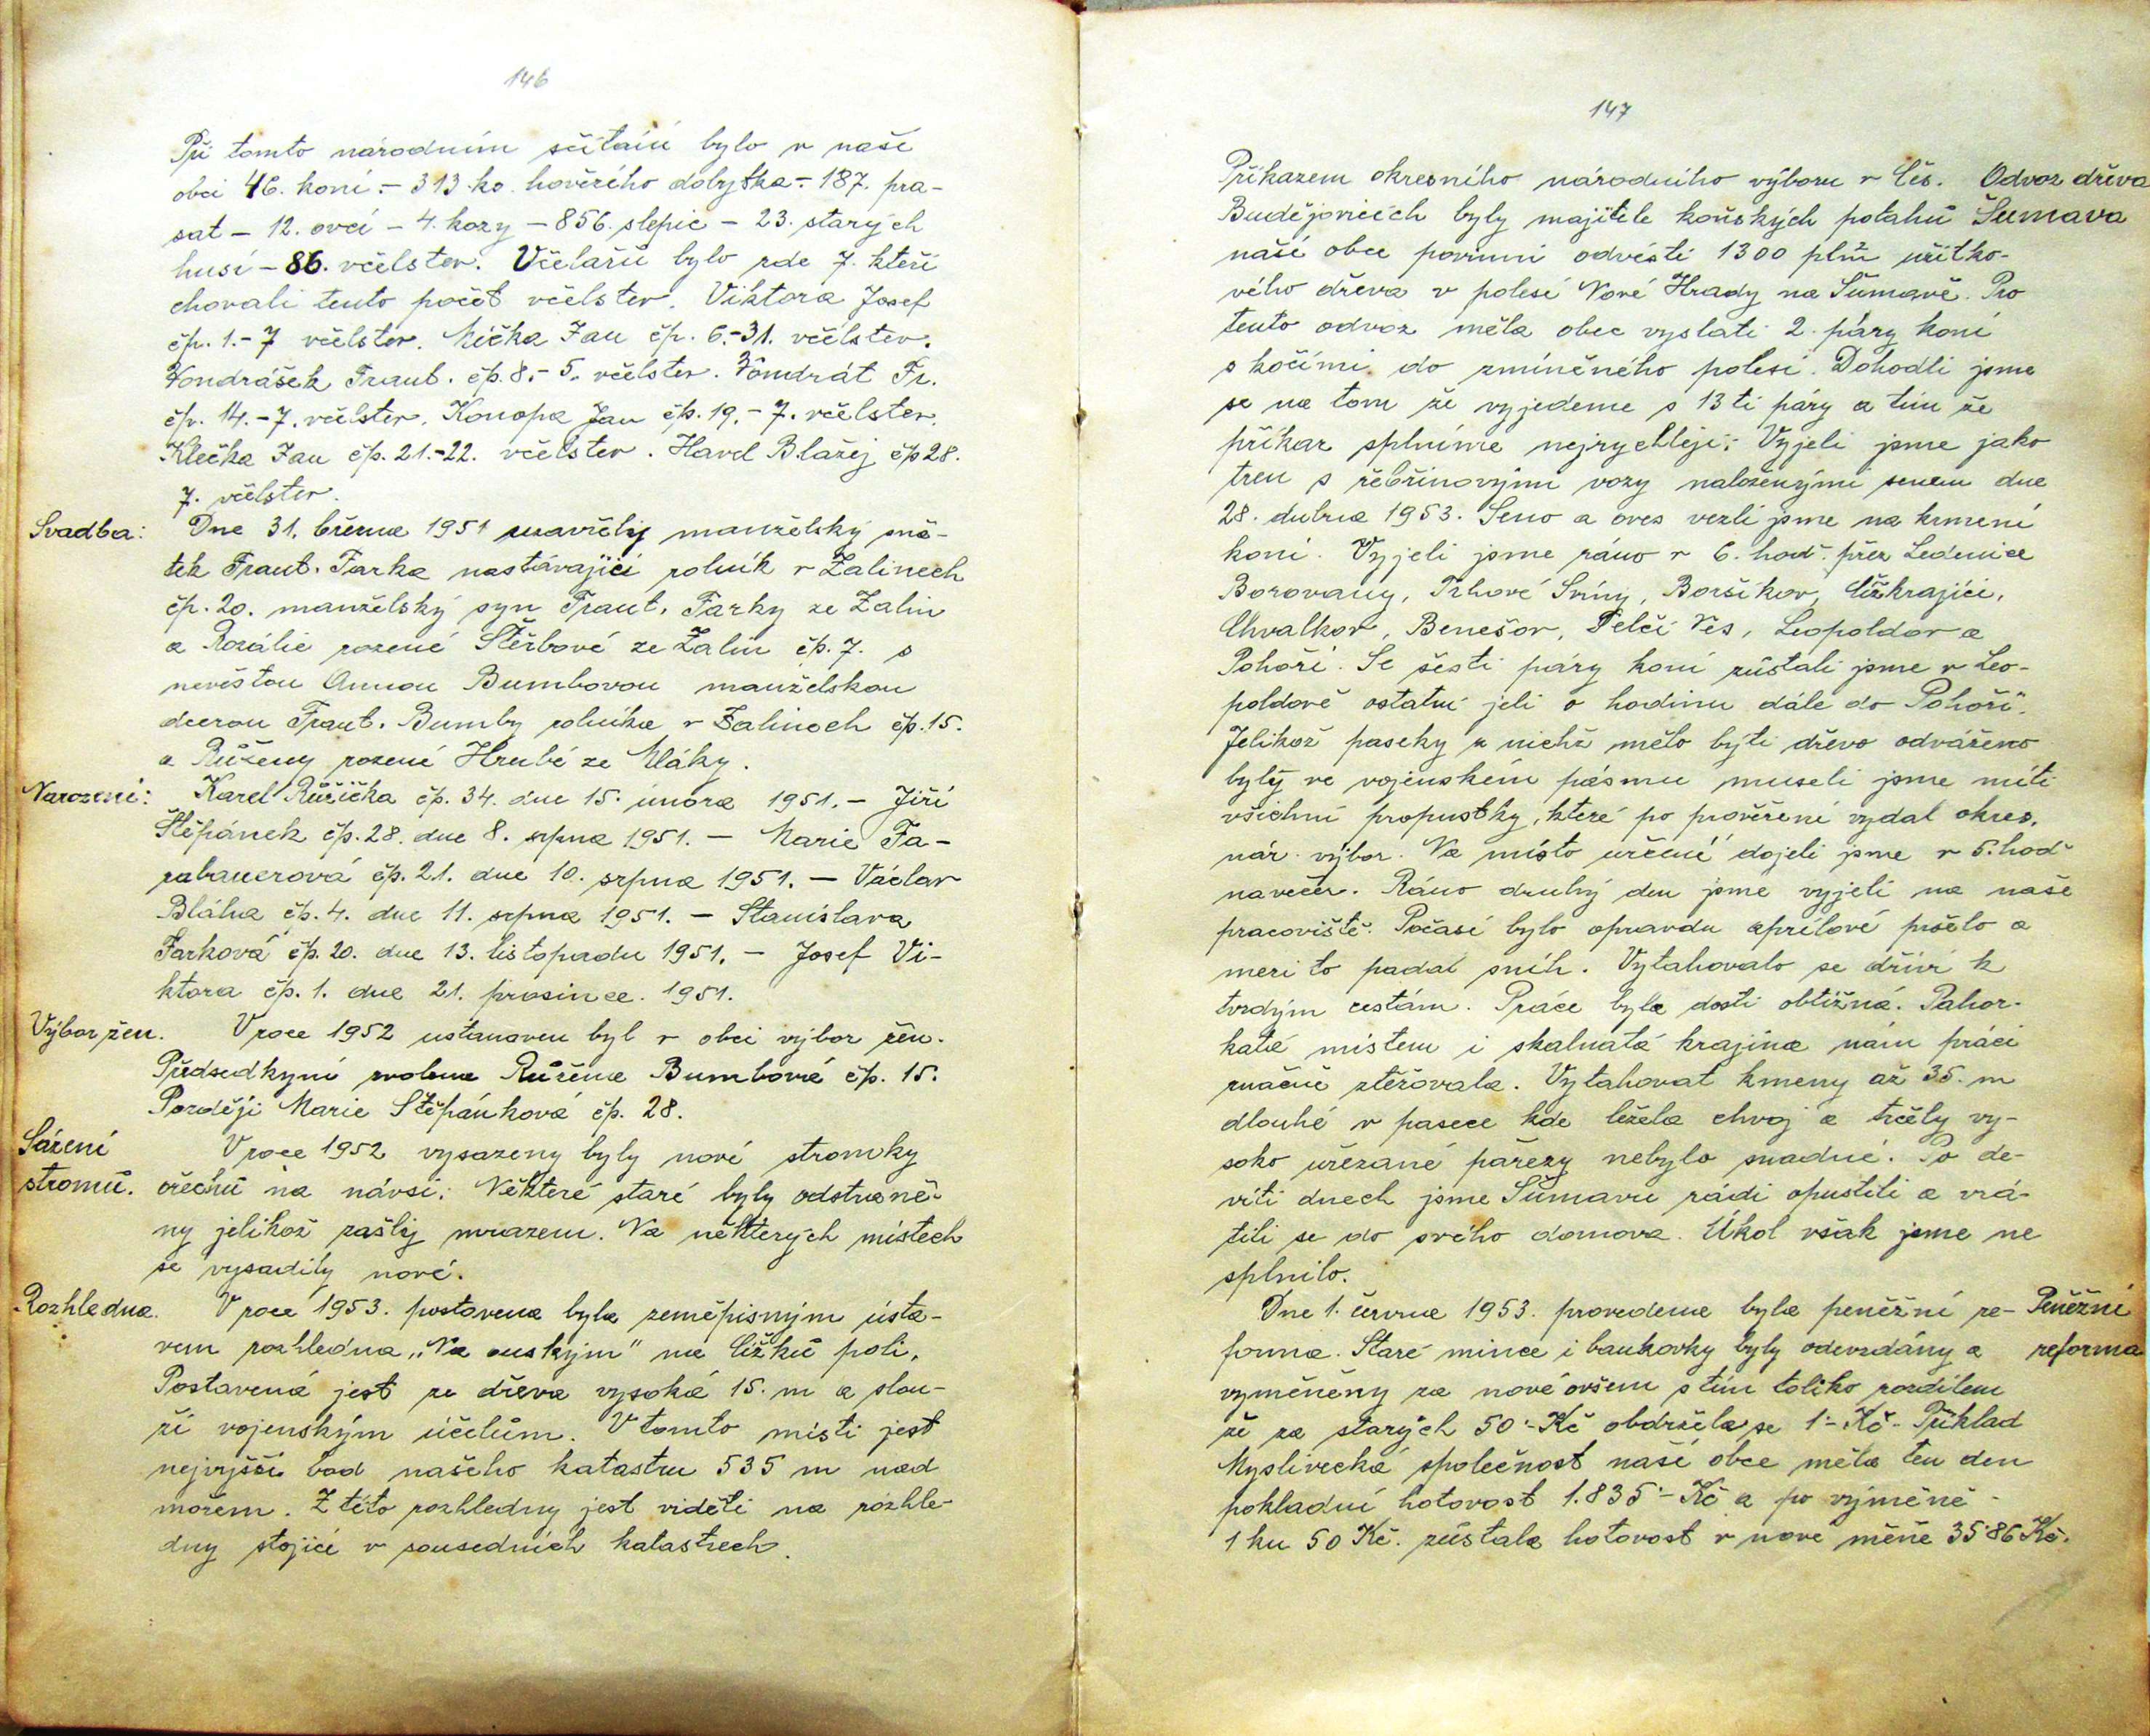 146
Při tomto národním sčítání bylo v naší
obci 46. koní. - 313 ks. hovězího dobytka - 187. pra-
sat - 12. ovcí - 4. kozy - 856. slepic - 23. starých
husí - 86. včelstev. Včelařů bylo zde 7. kteří
chovali tento počet včelstev. Viktora Josef
čp. 1. - 7 včelstev. Mička Jan čp. 6. - 31. včelstev.
Vondrášek Frant. čp. 8. - 5. včelstev. Vondrát Fr.
čp. 14. - 7. včelstev, Konopa Jan čp. 19. - 7. včelstev.
Klečka Jan čp. 21. - 22. včelstev. Havel Blažej čp 28.
7. včelstev.
Svadba: Dne 31. března 1951 uzavřely manželský sně-
tek Frant. Farka nastávající rolník v Zalinech
čp. 20. manželský syn Frant. Farky ze Zalin
a Rozálie rozené Štěrbové ze Zalin čp. 7. s
nevěstou Annou Bumbovou manželskou
dcerou Frant. Bumby rolníka v Zalinech čp. 15.
a Růženy rozené Hrubé ze Mláky.
Narození: Karel Růžička čp. 34. dne 15. února 1951. - Jiří
Štěpánek čp. 28. dne 8. srpna 1951. - Marie Fa-
rabauerová čp. 21. dne 10. srpna 1951. - Václav
Bláha čp. 4. dne 11. srpna 1951. - Stanislava
Farková čp. 20. dne 13. listopadu 1951. - Josef Vi-
ktora čp. 1. dne 21. prosince. 1951.
Výbor žen. V roce 1952 ustanoven byl v obci výbor žen.
Předsedkyní zvolena Růžena Bumbová čp. 15.
Později Marie Štěpánková čp. 28.
Sázení V roce 1952 vysazeny byly nové stromky
stromů. ořechů na návsi. Některé staré byly odstraně-
ny jelikož zašly mrazem. Na některých místech
se vysadily nové.
Rozhledna. V roce 1953. postavena byla zeměpisným ústa-
vem rozhledna „Na ouským" na Cížků poli.
Postavená jest ze dřeva vysoká 15. m a slou-
ží vojenským účelům. V tomto místi jest
nejvyšší bod našeho katastru 535 m nad
mořem. Z této rozhledny jest viděti na rozhle-
dny stojící v sousedních katastrech.
147
Příkazem okresního národního výboru v Čes. Odvoz dřeva
Budějovicích byly majitele koňských potahů Šumava
naší obce povinni odvésti 1300 plm užitko-
vého dřeva v polesí Nové Hrady na Šumavě. Pro
tento odvoz měla obec vyslati 2. páry koní
s kočími do zmíněného polesí. Dohodli jsme
se na tom že vyjedeme s 13ti páry a tím že
příkaz splníme nejrychleji. Vyjeli jsme jako
tren s žebřinovými vozy naloženými senem dne
28. dubna 1953. Seno a oves vezli jsme na krmení
koní. Vyjeli jsme ráno v 6. hod. přez Ledenice
Borovany, Trhové Sviny, Boršíkov, Čížkrajíci,
Chvalkov, Benešov, Pelčí Ves, Leopoldov a
Pohoří. Se šesti páry koní zůstali jsme v Leo-
poldově ostatní jeli o hodinu dále do Pohoří.
Jelikož paseky z nichž mělo býti dřevo odváženo
byly ve vojenském pásmu museli jsme míti
všichni propustky, které po prověření vydal okres.
nár. výbor. Na místo určené dojeli jsme v 5. hod
navečer. Ráno druhý den jsme vyjeli na naše
pracoviště. Počasí bylo opravdu aprílové pršelo a
mezi to padal sníh. Vytahovalo se dříví k
tvrdým cestám. Práce byla dosti obtížná. Pahor-
katá místem i skalnatá krajina nám práci
značně stěžovala. Vytahovat kmeny až 35. m
dlouhé v pasece kde ležela chvoj a trčely vy-
soko uřezané pařezy nebylo snadné. Po de-
víti dnech jsme Šumavu rádi opustili a vrá-
tili se do svého domova. Úkol však jsme ne
splnilo.
Dne 1. června 1953. provedena byla peněžní re- Peněžní
forma. Staré mince i bankovky byly odevzdány a reforma
vyměněny za nové ovšem s tím toliko rozdílem
že za starých 50·- Kč obdržela se 1·- Kč. Příklad
Myslivecká společnost naší obce měla ten den
pokladní hotovost 1.835·- Kč a po výměně
1 ku 50 Kč. zůstala hotovost v nove měně 35·86 Kč.